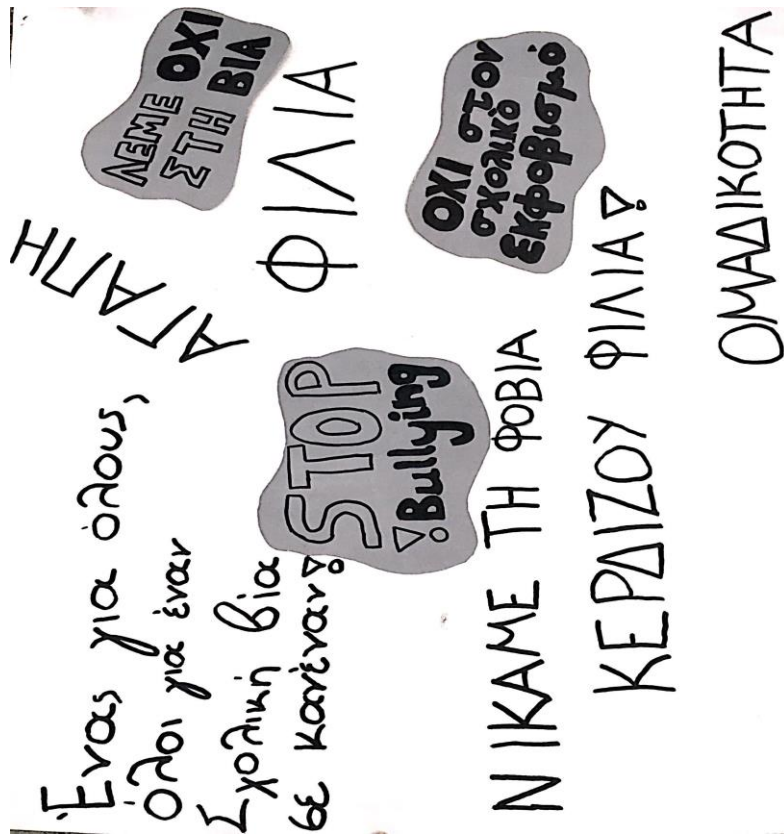 Ένας για όλους,
όλοι για έναν
Σχολική βία
σε κανέναν!
ΑΓΑΠΗ
ΛΕΜΕ ΟΧΙ
ΣΤΗ ΒΙΑ
ΦΙΛΙΑ
STOP
! Bullying
ΟΧΙ στον
σχολικό
εκφοβισμό
ΝΙΚΑΜΕ ΤΗ ΦΟΒΙΑ
ΚΕΡΔΙΖΟΥ ΦΙΛΙΑ!
ΟΜΑΔΙΚΟΤΗΤΑ